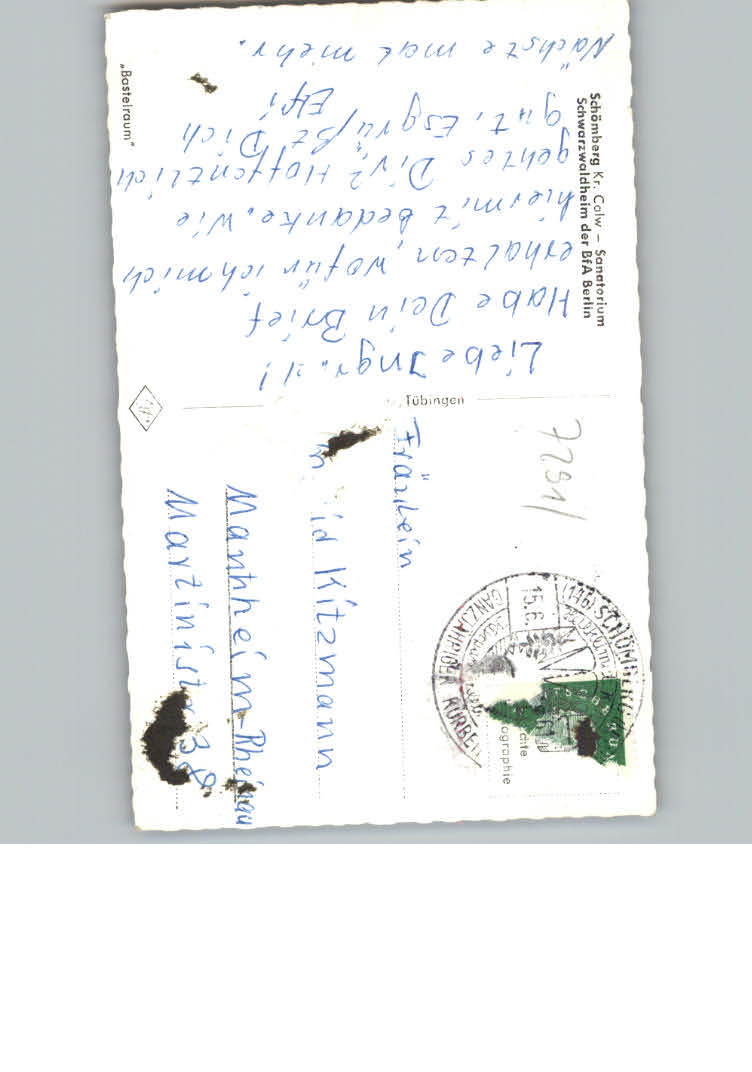 Schömberg Kr. Calw – Sanatorium
Schwarzwaldheim der BfA Berlin
Liebe Ingr.d!
Habe Dein Brief
erhalten, wofür ich mich
hiermit bedanke. Wie
geht es Dir? Hoffentlich
gut. Es grüßt Dich
Elfi
Nächste mal mehr.
„Bastelraum"
Tübingen
7291
(14b) SCHÖMBERG
15.6.
GANZJÄHRIGER
KURBE
Fräulein
id Kitzmann
Mannheim-Rheinau
Martinistr 38